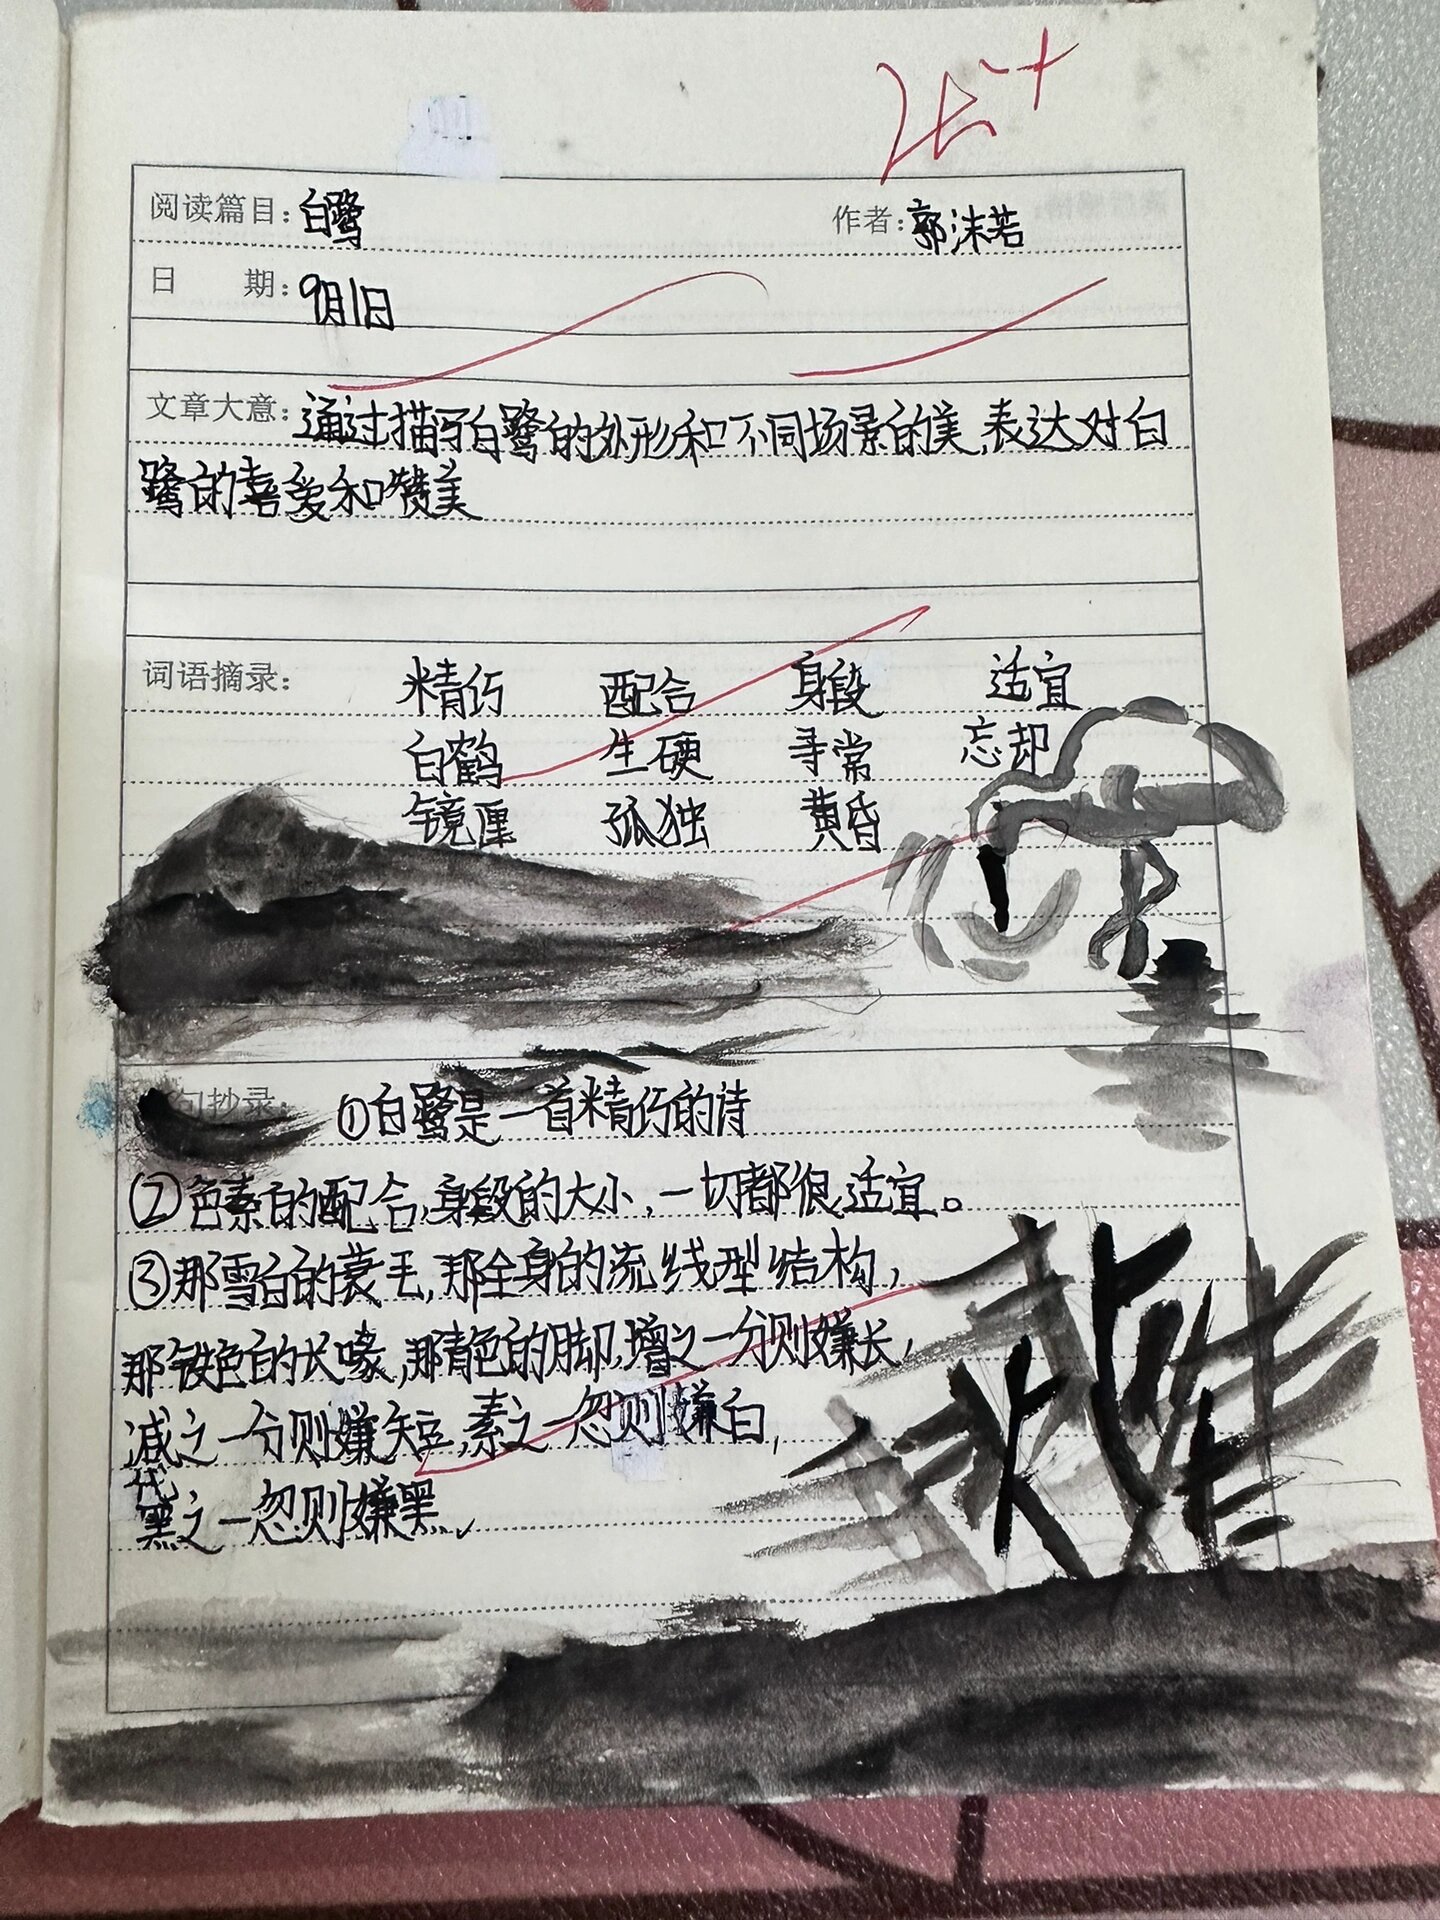 阅读篇目：白鹭 作者：郭沫若
日 期：9月1日
文章大意：通过描写白鹭的外形和不同场景的美，表达对白
鹭的喜爱和赞美
词语摘录： 精巧 配合 身段 适宜
白鹤 生硬 寻常 忘却
镜匣 孤独 黄昏
句抄录： ①白鹭是一首精巧的诗
②色素的配合，身段的大小，一切都很适宜。
③那雪白的蓑毛，那全身的流线型结构，
那铁色的长喙，那青色的脚，增之一分则嫌长，
减之一分则嫌短，素之一忽则嫌白，
黑之一忽则嫌黑。